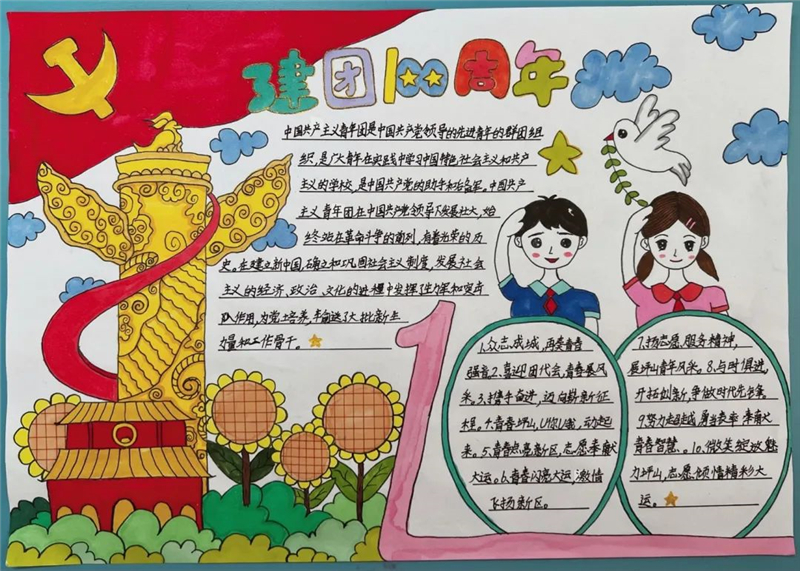 建团100周年
中国共产主义青年团是中国共产党领导的先进青年的群团组
织,是广大青年在实践中学习中国特色社会主义和共产
主义的学校,是中国共产党的助手和后备军。中国共产
主义青年团在中国共产党领导下发展壮大,始
终站在革命斗争的前列,有着光荣的历
史。在建立新中国,确立和巩固社会主义制度,发展社会
主义的经济、政治、文化的进程中发挥生力军和突击
队作用,为党培养、输送了大批新生
力量和工作骨干。
1.众志成城,再奏青春
强音2.喜迎团代会,青春展风
采。3.携手奋进,迈向新征
程。4.青春坪山,U你U我,动起
来。5.青春点亮新区,志愿奉献
大运。6.青春闪亮大运,激情
飞扬新区。
7.扬志愿服务精神,
展坪山青年风采。8.与时俱进,
开拓创新,争做时代先锋
9.努力超越,勇当表率,奉献
青春智慧。10.微笑绽放魅
力坪山,志愿倾情精彩大
运。